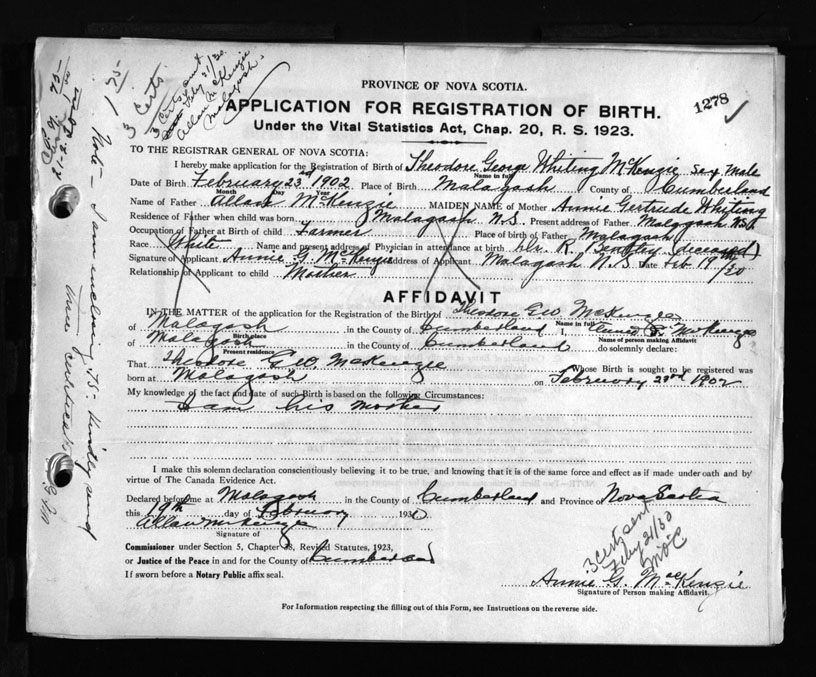 3 certs sent
Feby 21/30
Allan McKenzie
Malagash.
1 75
3 Certs.
PROVINCE OF NOVA SCOTIA.
1278
APPLICATION FOR REGISTRATION OF BIRTH.
Under the Vital Statistics Act, Chap. 20, R. S. 1923.
TO THE REGISTRAR GENERAL OF NOVA SCOTIA:
I hereby make application for the Registration of Birth of Theodore George Whiting McKenzie Sex Male
Name in full
Date of Birth February 23rd 1902 Place of Birth Malagash County of Cumberland
Month Day Year
Name of Father Allan McKenzie MAIDEN NAME of Mother Annie Gertrude Whiting
Residence of Father when child was born Malagash N.S. Present address of Father Malagash N.S.
Occupation of Father at Birth of child Farmer Place of birth of Father Malagash
Race White Name and present address of Physician in attendance at birth Dr. R. (deceased)
Signature of Applicant Annie G. McKenzie Address of Applicant Malagash N.S. Date Feb 19th/30
Relationship of Applicant to child Mother
AFFIDAVIT
IN THE MATTER of the application for the Registration of the Birth of Theodore Geo W McKenzie
Name in full
of Malagash in the County of Cumberland I, Annie G. McKenzie
Birth place Name of person making Affidavit
of Malagash in the County of Cumberland do solemnly declare:
Present residence
That Theodore G. W. McKenzie Whose Birth is sought to be registered was
born at Malagash on February 23rd 1902
My knowledge of the fact and date of such Birth is based on the following Circumstances:
I am his Mother
I make this solemn declaration conscientiously believing it to be true, and knowing that it is of the same force and effect as if made under oath and by
virtue of The Canada Evidence Act.
Declared before me at Malagash in the County of Cumberland and Province of Nova Scotia
this 19th day of February 1930
Allan McKenzie
Signature of
Commissioner under Section 5, Chapter 38, Revised Statutes, 1923,
or Justice of the Peace in and for the County of Cumberland
If sworn before a Notary Public affix seal.
3 certs sent
Feby 21/30
McC
Annie G. MacKenzie
Signature of Person making Affidavit.
For Information respecting the filling out of this Form, see Instructions on the reverse side.
Note - I am enclosing 75- Kindly send
three certificates